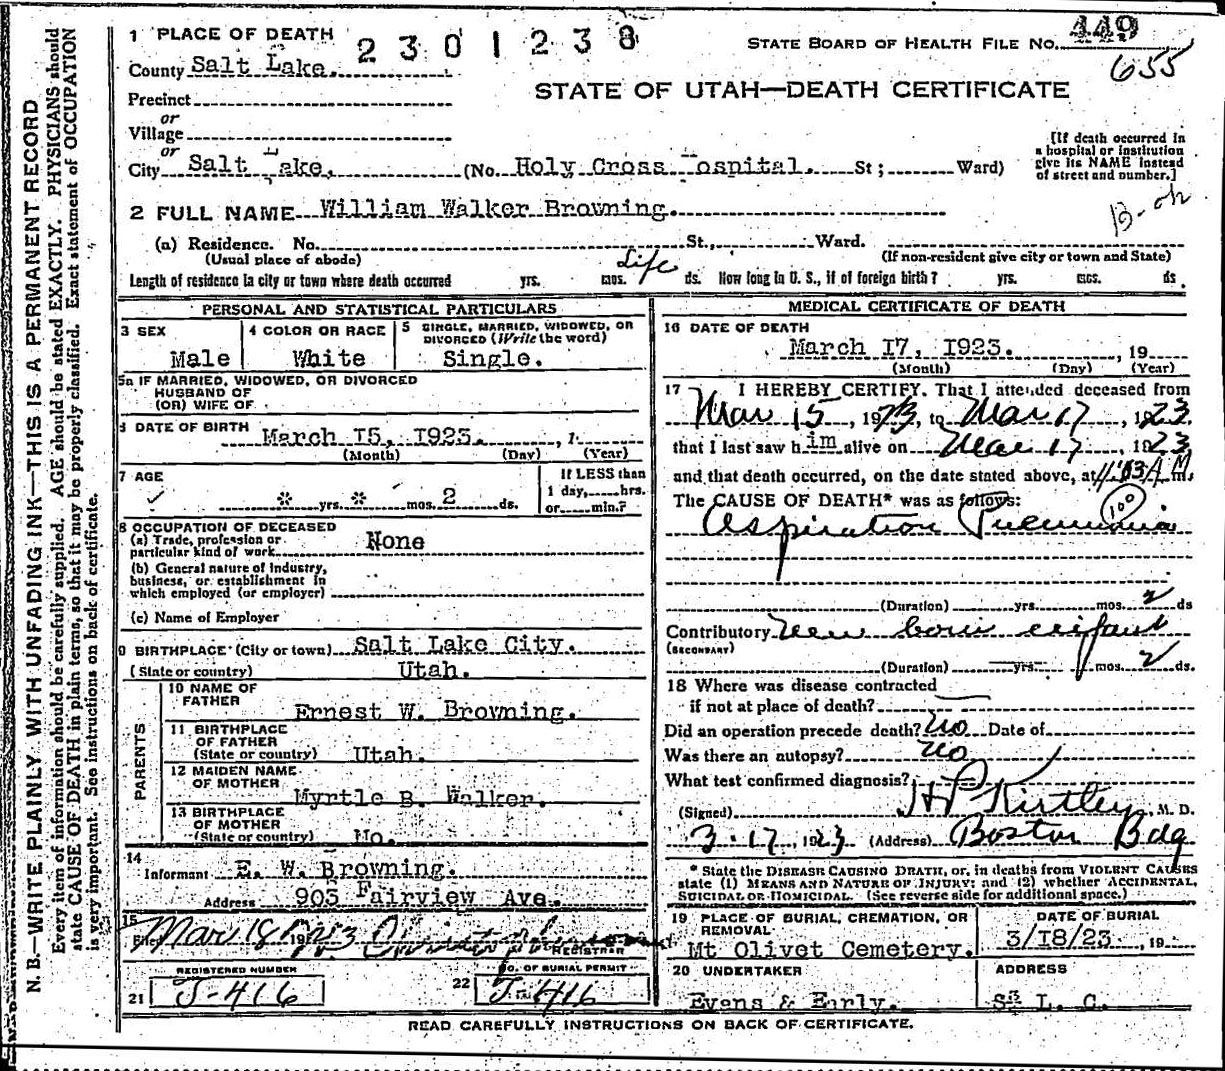 1 PLACE OF DEATH 2301238
STATE BOARD OF HEALTH FILE NO. 449
655
County Salt Lake.
STATE OF UTAH—DEATH CERTIFICATE
Precinct
or
Village
or
City Salt ake, (No. Holy Cross ospital. St; Ward)
[If death occurred in
a hospital or institution
give its NAME instead
of street and number.]
2 FULL NAME William Walker Browning.
(a) Residence. No. St., Ward.
(Usual place of abode) (If non-resident give city or town and State)
Length of residence in city or town where death occurred yrs. mos. Life ds. How long in U. S., if of foreign birth? yrs. mos. ds.
PERSONAL AND STATISTICAL PARTICULARS
3 SEX Male
4 COLOR OR RACE White
5 SINGLE, MARRIED, WIDOWED, OR
DIVORCED (Write the word)
Single.
5a IF MARRIED, WIDOWED, OR DIVORCED
HUSBAND OF
(OR) WIFE OF
6 DATE OF BIRTH March I5, I923. , 1
(Month) (Day) (Year)
7 AGE
* yrs. * mos. 2 ds.
If LESS than
1 day, hrs.
or min.?
8 OCCUPATION OF DECEASED
(a) Trade, profession or
particular kind of work None
(b) General nature of Industry,
business, or establishment in
which employed (or employer)
(c) Name of Employer
9 BIRTHPLACE (City or town) Salt Lake City.
(State or country) Utah.
PARENTS
10 NAME OF
FATHER Ernest W. Browning.
11 BIRTHPLACE
OF FATHER
(State or country) Utah.
12 MAIDEN NAME
OF MOTHER Myrtle B. Walker.
13 BIRTHPLACE
OF MOTHER
(State or country) Mo.
14
Informant E. W. Browning.
Address 903 Fairview Ave.
15
Filed Mar 18 1923
REGISTRAR
REGISTERED NUMBER
21 J-416
NO. OF BURIAL PERMIT
22 J-416
MEDICAL CERTIFICATE OF DEATH
16 DATE OF DEATH
March I7, I923. , 19
(Month) (Day) (Year)
17 I HEREBY CERTIFY, That I attended deceased from
Mar 15, 1923, to Mar 17, 1923
that I last saw him alive on Mar 17, 1923
and that death occurred, on the date stated above, at A M m.
The CAUSE OF DEATH* was as follows:
100
Aspiration Pneumonia
(Duration) yrs. mos. 2 ds
Contributory New born infant
(SECONDARY)
(Duration) yrs. mos. 2 ds.
18 Where was disease contracted
if not at place of death?
Did an operation precede death? No Date of
Was there an autopsy? No
What test confirmed diagnosis?
(Signed) H P Kirtley, M. D.
3-17, 1923 (Address) Boston Bdg
* State the DISEASE CAUSING DEATH, or, in deaths from VIOLENT CAUSES
state (1) MEANS AND NATURE OF INJURY; and (2) whether ACCIDENTAL,
SUICIDAL OR HOMICIDAL. (See reverse side for additional space.)
19 PLACE OF BURIAL, CREMATION, OR
REMOVAL
Mt Olivet Cemetery.
DATE OF BURIAL
3/I8/23 , 19
20 UNDERTAKER
Evans & Early.
ADDRESS
S. L. C.
READ CAREFULLY INSTRUCTIONS ON BACK OF CERTIFICATE.
N. B.—WRITE PLAINLY, WITH UNFADING INK—THIS IS A PERMANENT RECORD
Every item of information should be carefully supplied. AGE should be stated EXACTLY. PHYSICIANS should
state CAUSE OF DEATH in plain terms, so that it may be properly classified. Exact statement of OCCUPATION
is very important. See instructions on back of certificate.